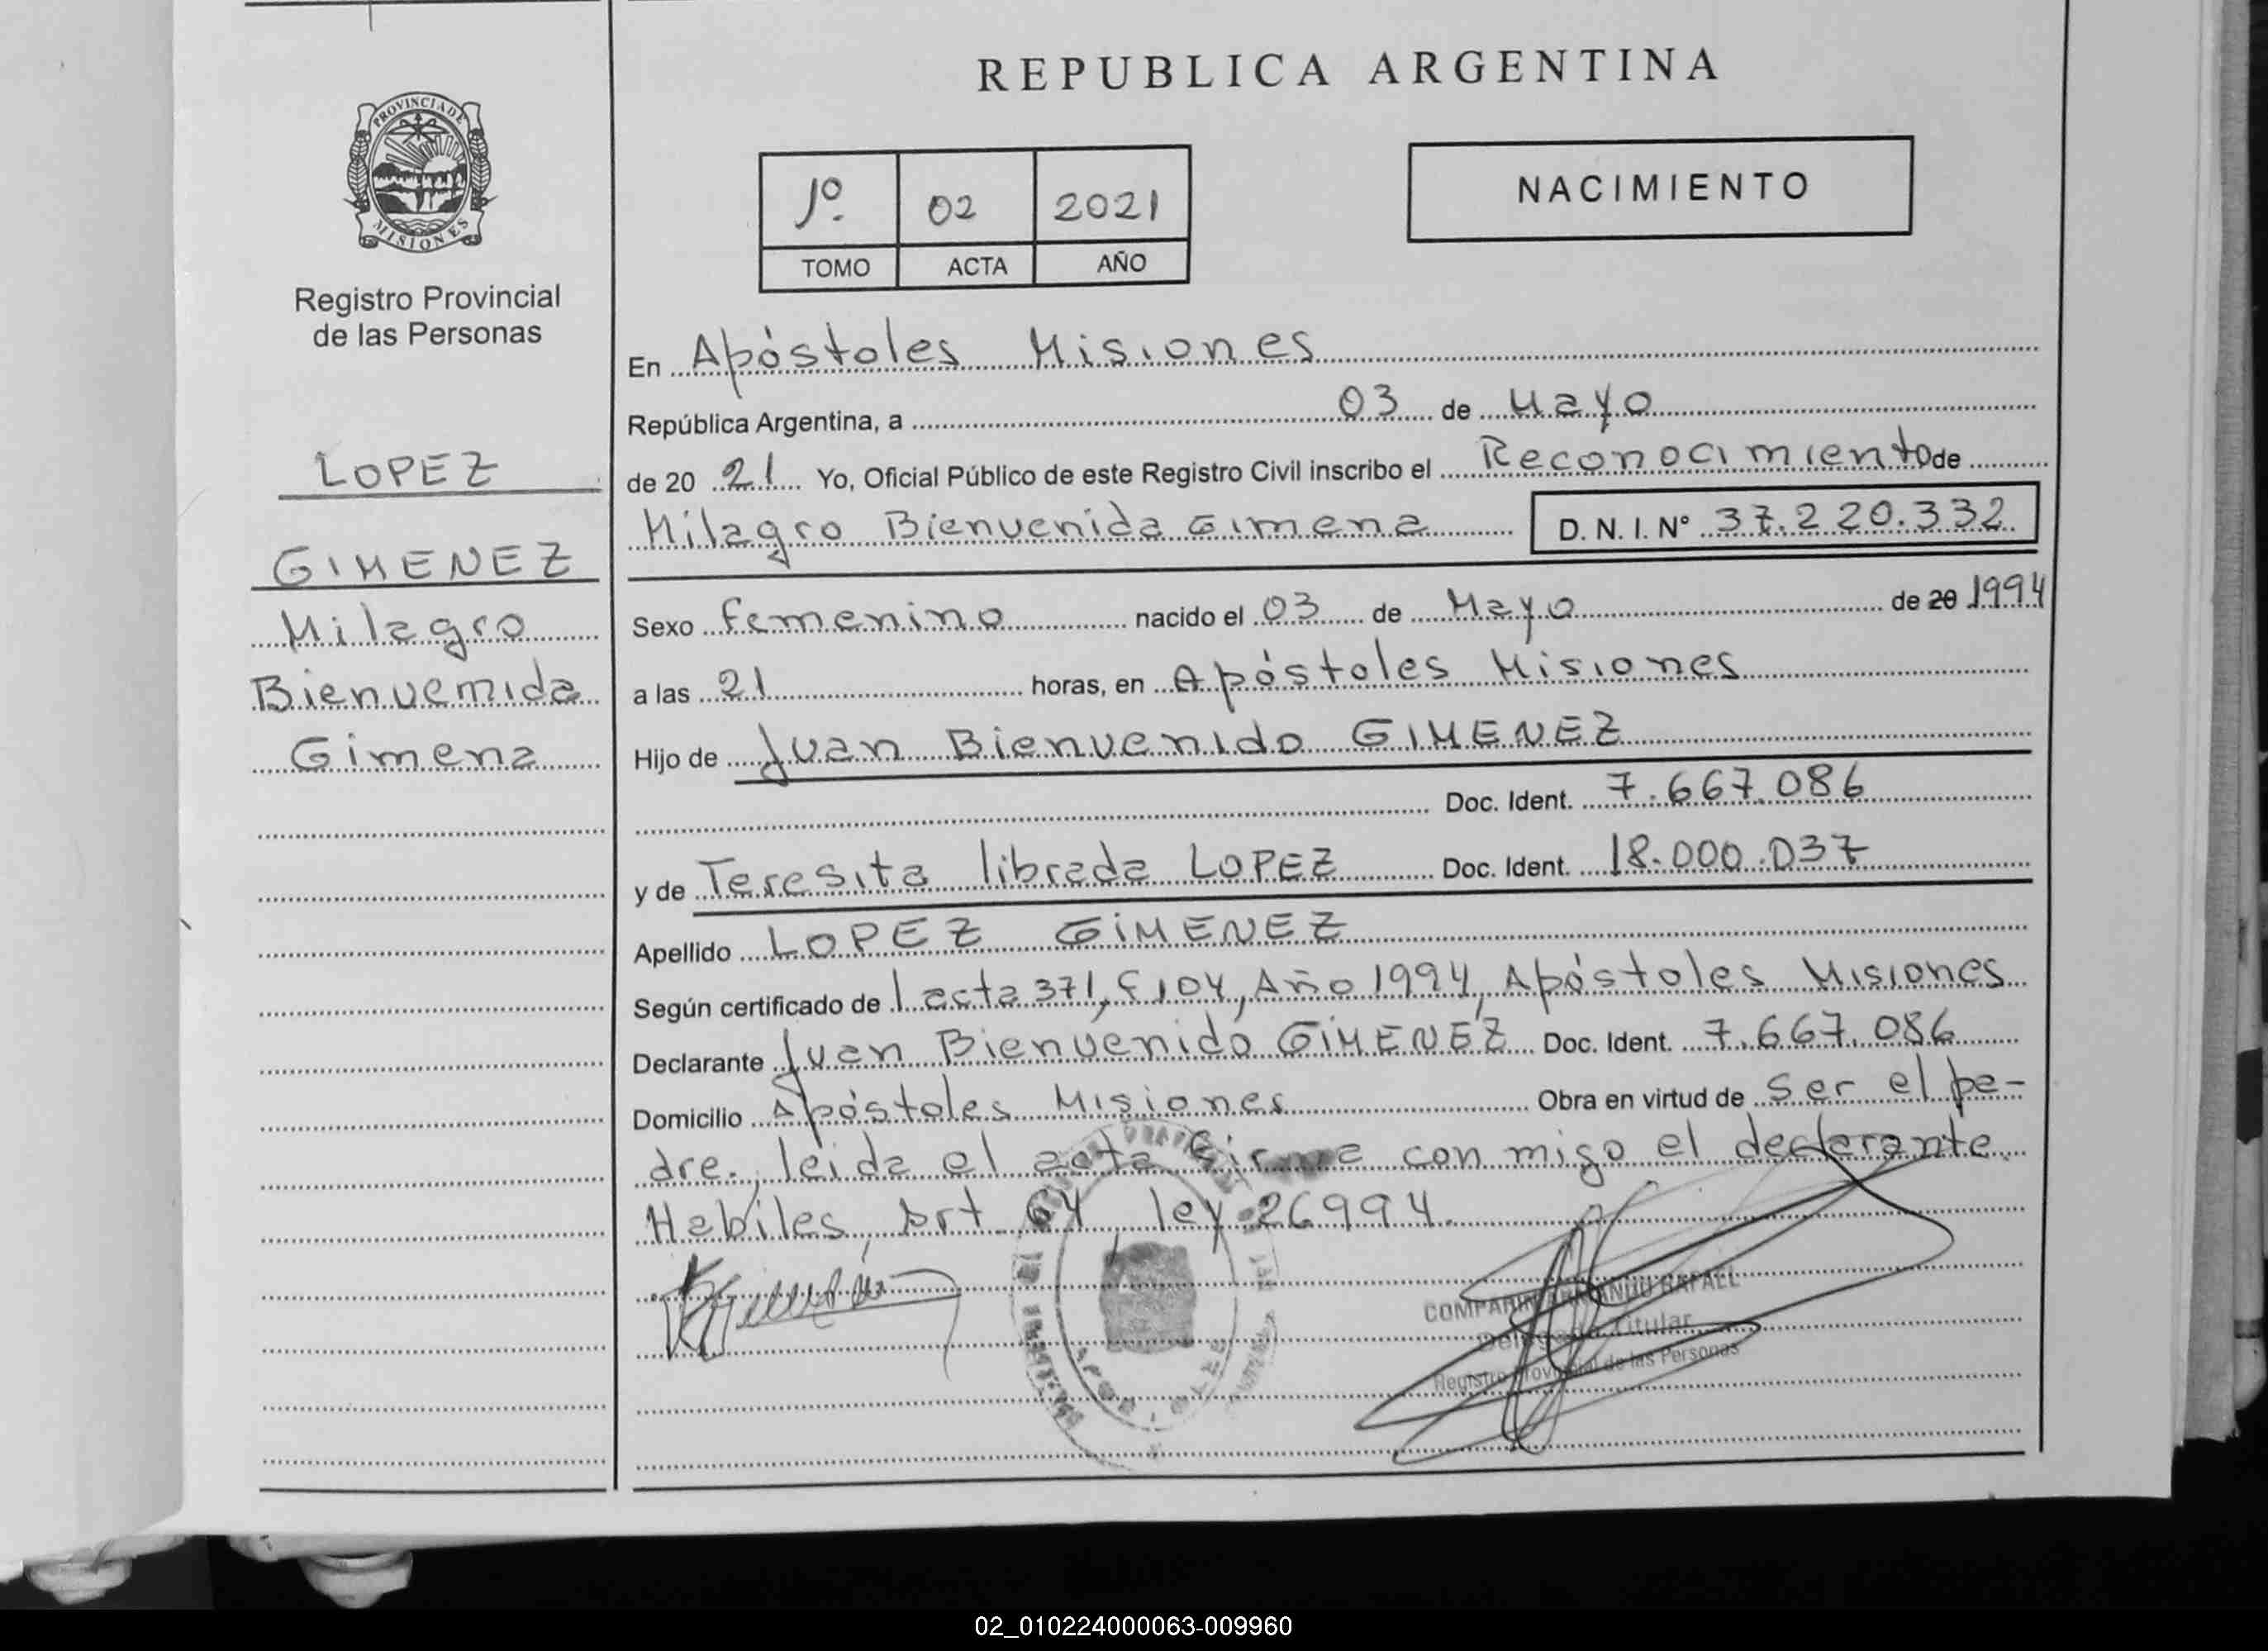 REPUBLICA ARGENTINA
PROVINCIA DE
MISIONES
Registro Provincial
de las Personas
1º 02 2021
TOMO ACTA AÑO
NACIMIENTO
LOPEZ
GIMENEZ
Milagro
Bienvenida
Gimena
En Apóstoles Misiones
República Argentina, a 03 de Mayo
de 20 21 Yo, Oficial Público de este Registro Civil inscribo el Reconocimiento de
Milagro Bienvenida Gimena D. N. I. N° 37.220.332
Sexo femenino nacido el 03 de Mayo de 20 1994
a las 21 horas, en Apóstoles Misiones
Hijo de Juan Bienvenido GIMENEZ
Doc. Ident. 7.667.086
y de Teresita librada LOPEZ Doc. Ident. 18.000.037
Apellido LOPEZ GIMENEZ
Según certificado de l acta 371, F 104, Año 1994, Apóstoles Misiones
Declarante Juan Bienvenido GIMENEZ Doc. Ident. 7.667.086
Domicilio Apóstoles Misiones Obra en virtud de ser el pa-
dre., leida el acta firma con migo el declarante.
Habiles, Art 64, ley 26994.
COMPARIN ARMANDO RAFAEL
Delegado Titular
Registro Provincial de las Personas
02_010224000063-009960